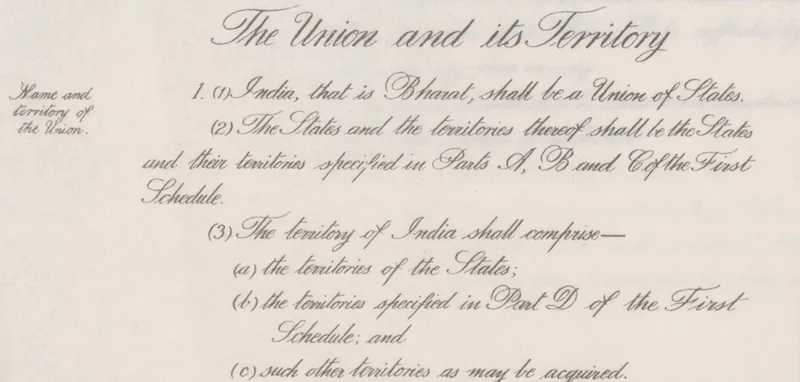 The Union and its Territory
Name and
territory of
the Union.
1. (1) India, that is Bharat, shall be a Union of States.
(2) The States and the territories thereof shall be the States
and their territories specified in Parts A, B and C of the First
Schedule.
(3) The territory of India shall comprise—
(a) the territories of the States;
(b) the territories specified in Part D of the First
Schedule; and
(c) such other territories as may be acquired.